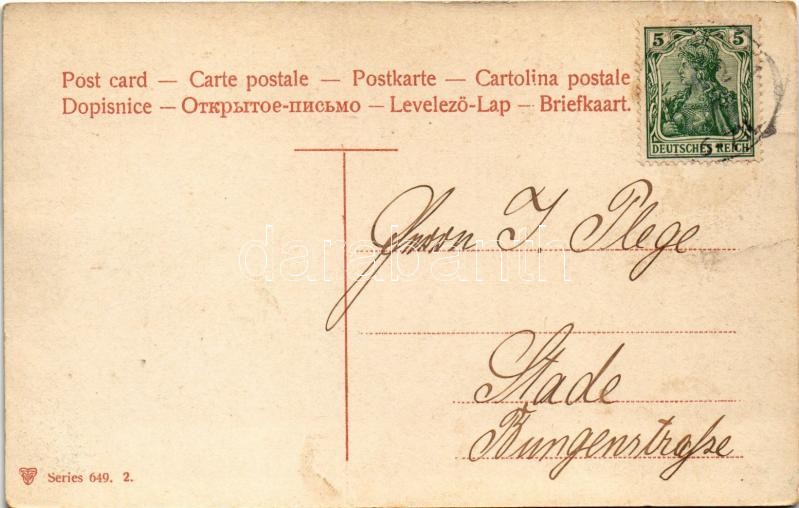 Post card — Carte postale — Postkarte — Cartolina postale
Dopisnice — Открытое-письмо — Levelező-Lap — Briefkaart.
5 5
DEUTSCHES REICH
Herrn J. Plege
darabanth
Stade
Bungenstraße
Series 649. 2.